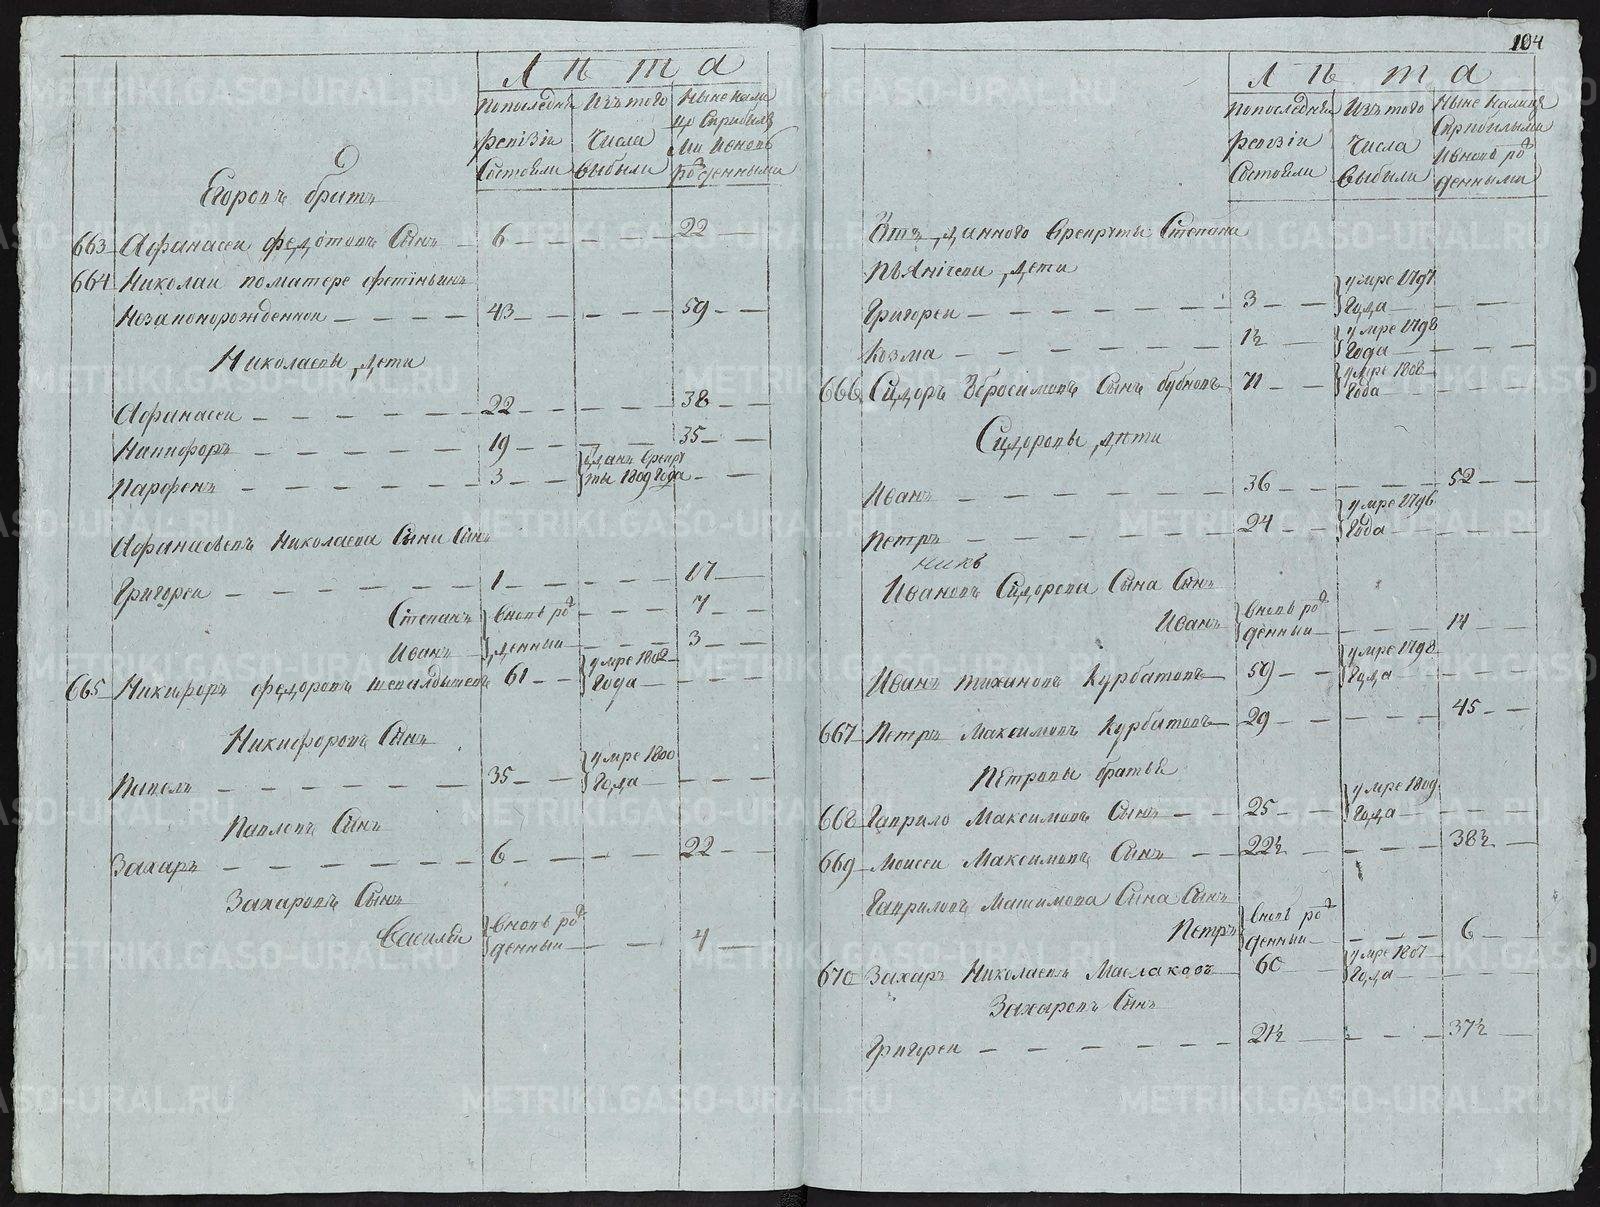 Лѣта
По последней ревизии состояли
Изъ того числа выбыли
Ныне нали цо с прибылы ми и вновь рожденными
Егоровъ братъ
663 Афанасеи федотовъ Сынъ 6 22
664 Николаи по матере фетиньинъ
Незаконорожденнои 43 59
Николаевы дети
Афанасеи 22 38
Никифоръ 19 35
Парфенъ 3 зданъ врекру ты 1809 года
Афанасьевъ Николаева Сына Сынъ
Григореи 1 17
Степанъ вновь рож 7
Иванъ денныи 3
665 Никифоръ федоровъ 61 умре 1802 года
Никифоровъ Сынъ
Павелъ 35 умре 1800 года
Павловъ Сынъ
Захаръ 6 22
Захаровъ Сынъ
Василеи вновь рож денныи 4
104
Лѣта
По последней ревизии состояли
Изъ того числа выбыли
Ныне налице с прибылыми и вновь рож денными
данного врекруты Степана
пьяничева дети
Григореи 3 умре 1797 года
Козма 1½ умре 1798 года
666 Сидоръ Збросимовъ Сынъ бубновъ 71 умре 1808 года
Сидоровы дѣти
Иванъ 36 52
Петръ 24 умре 1796 года
Ивановъ Сидорева Сына Сынъ
Иванъ вновь рож денныи 14
Иванъ тихановъ Курбатовъ 59 умре 1798 года
667 Петръ Максимовъ Курбатовъ 29 45
Петровы братья
668 Гаврило Максимовъ Сынъ 25 умре 1809 года
669 Моисеи Максимовъ Сынъ 22½ 38½
Гавриловъ Макимова Сына Сынъ
Петръ вновь рож денныи 6
670 Захаръ Николаевъ Маслаковъ 60 умре 1807 года
Захаровъ Сынъ
Григореи 21½ 37½
METRIKI.GASO-URAL.RU